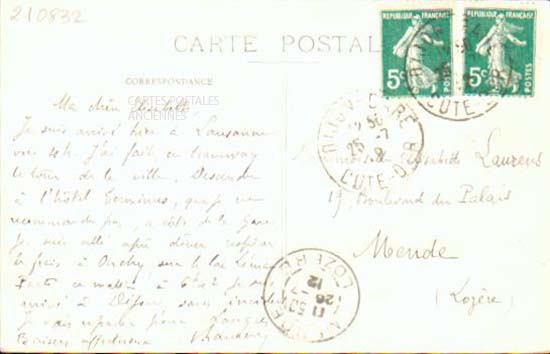 210832
CARTE POSTALE
REPUBLIQUE FRANÇAISE
5c
POSTES
REPUBLIQUE FRANÇAISE
5c
POSTES
CORRESPONDANCE
CARTES POSTALES
ANCIENNES
Ma chère
Je suis arrivé hier à Lausanne
vers 4h. J'ai fait en tramway
le tour de la ville. Descendu
à l'hôtel Terminus, que je ne
recommande pas, à côté de la Gare
Je suis allé après dîner respirer
le frais à Ouchy sur le lac Léman
Parti ce matin à
arrivé à Dijon sans incident
Je vais repartir pour Langres
Baisers affectueux
DIJON-GARE
25-7
COTE-D'OR
Mademoiselle Laurens
19, Boulevard du Palais
Mende
(Lozère)
LOZERE
26-7
12